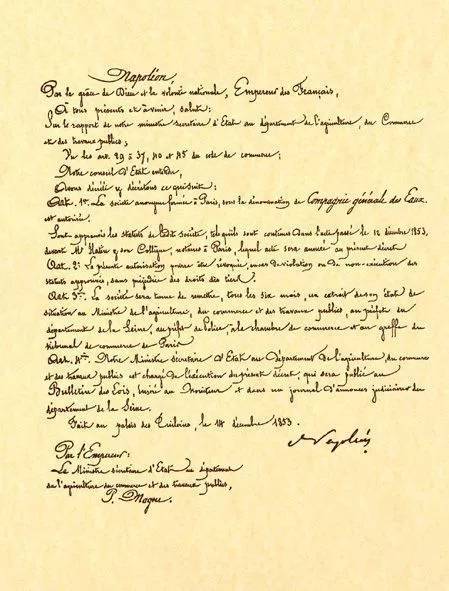 Napoléon,
Par la grâce de Dieu et la volonté nationale, Empereur des Français,
A tous présents et à venir, salut:
Sur le rapport de notre ministre secrétaire d'Etat au département de l'agriculture, du Commerce
et des travaux publics;
Vu les art. 29 à 37, 40 et 45 du code de commerce;
Notre conseil d'Etat entendu,
Avons décrété et décrétons ce qui suit:
Art. 1er. La société anonyme formée à Paris, sous la dénomination de Compagnie générale des Eaux
est autorisée.
Sont approuvés les statuts de dit société, tels qu'ils sont contenus dans l'acte passé le 12 décembre 1853,
devant Me et son Collègue, notaires à Paris, lequel acte sera annexé au présent décret
Art. 2: La présente autorisation pourra être révoquée, en cas de violation ou de non-exécution des
statuts approuvés, sans préjudice des droits des tiers.
Art. 3: La société sera tenue de remettre, tous les six mois, un extrait de son état de
situation au Ministre de l'agriculture, du commerce et des travaux publics, au préfet du
département de la Seine, au préfet de Police, à la chambre de commerce et au greffe du
tribunal de commerce de Paris
Art. 4: Notre Ministre Secrétaire d'Etat au Département de l'agriculture, du commerce
et des travaux publics est chargé de l'exécution du présent décret, qui sera publié au
Bulletin des Lois, inséré au Moniteur et dans un journal d'annonces judiciaires du
département de la Seine.
Fait au palais des Tuileries, le 14 décembre 1853.
Napoléon
Par l'Empereur:
Le Ministre secrétaire d'Etat au département
de l'agriculture du commerce et des travaux publics,
P. Magne.